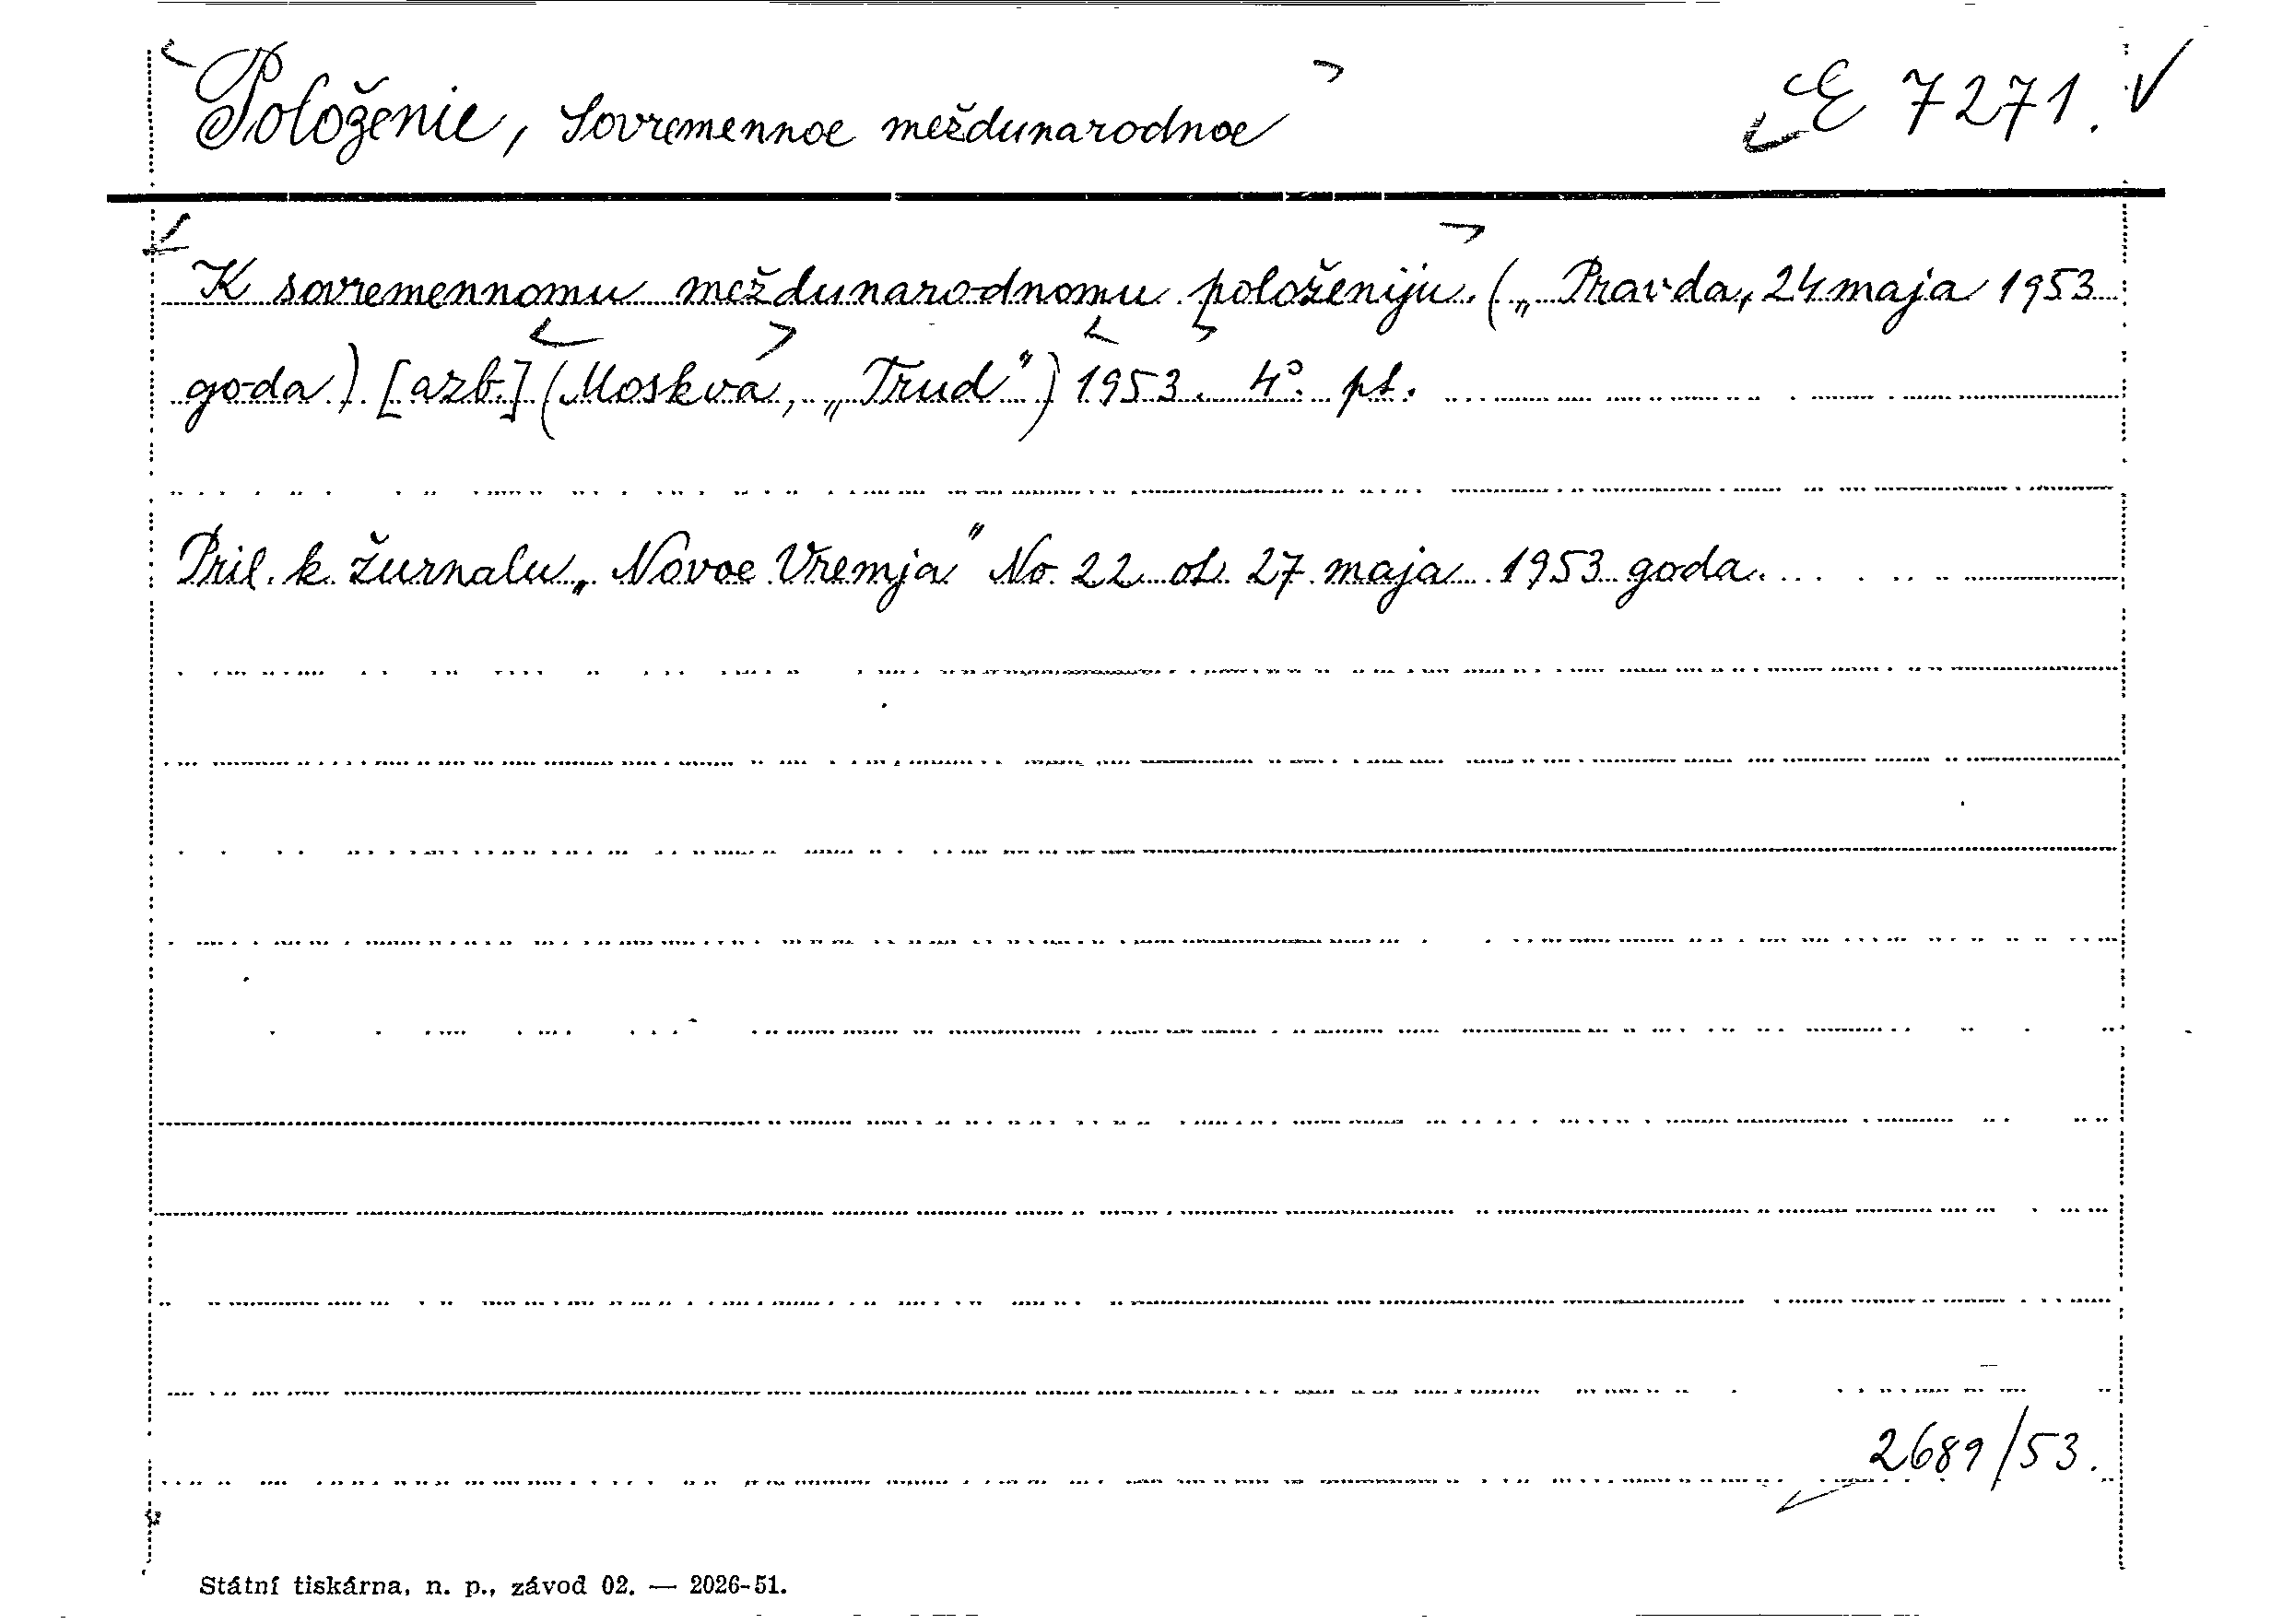 Položenie, Sovremennoe meždunarodnoe
E 7271.
K sovremennomu meždunarodnomu položeniju. („Pravda, 24 maja 1953
goda.) [azb.] (Moskva, „Trud") 1953. 4°. pt.
Pril. k žurnalu „Novoe Vremja" No. 22 ot 27 maja 1953 goda.
2689/53.
Státní tiskárna, n. p., závod 02. — 2026-51.